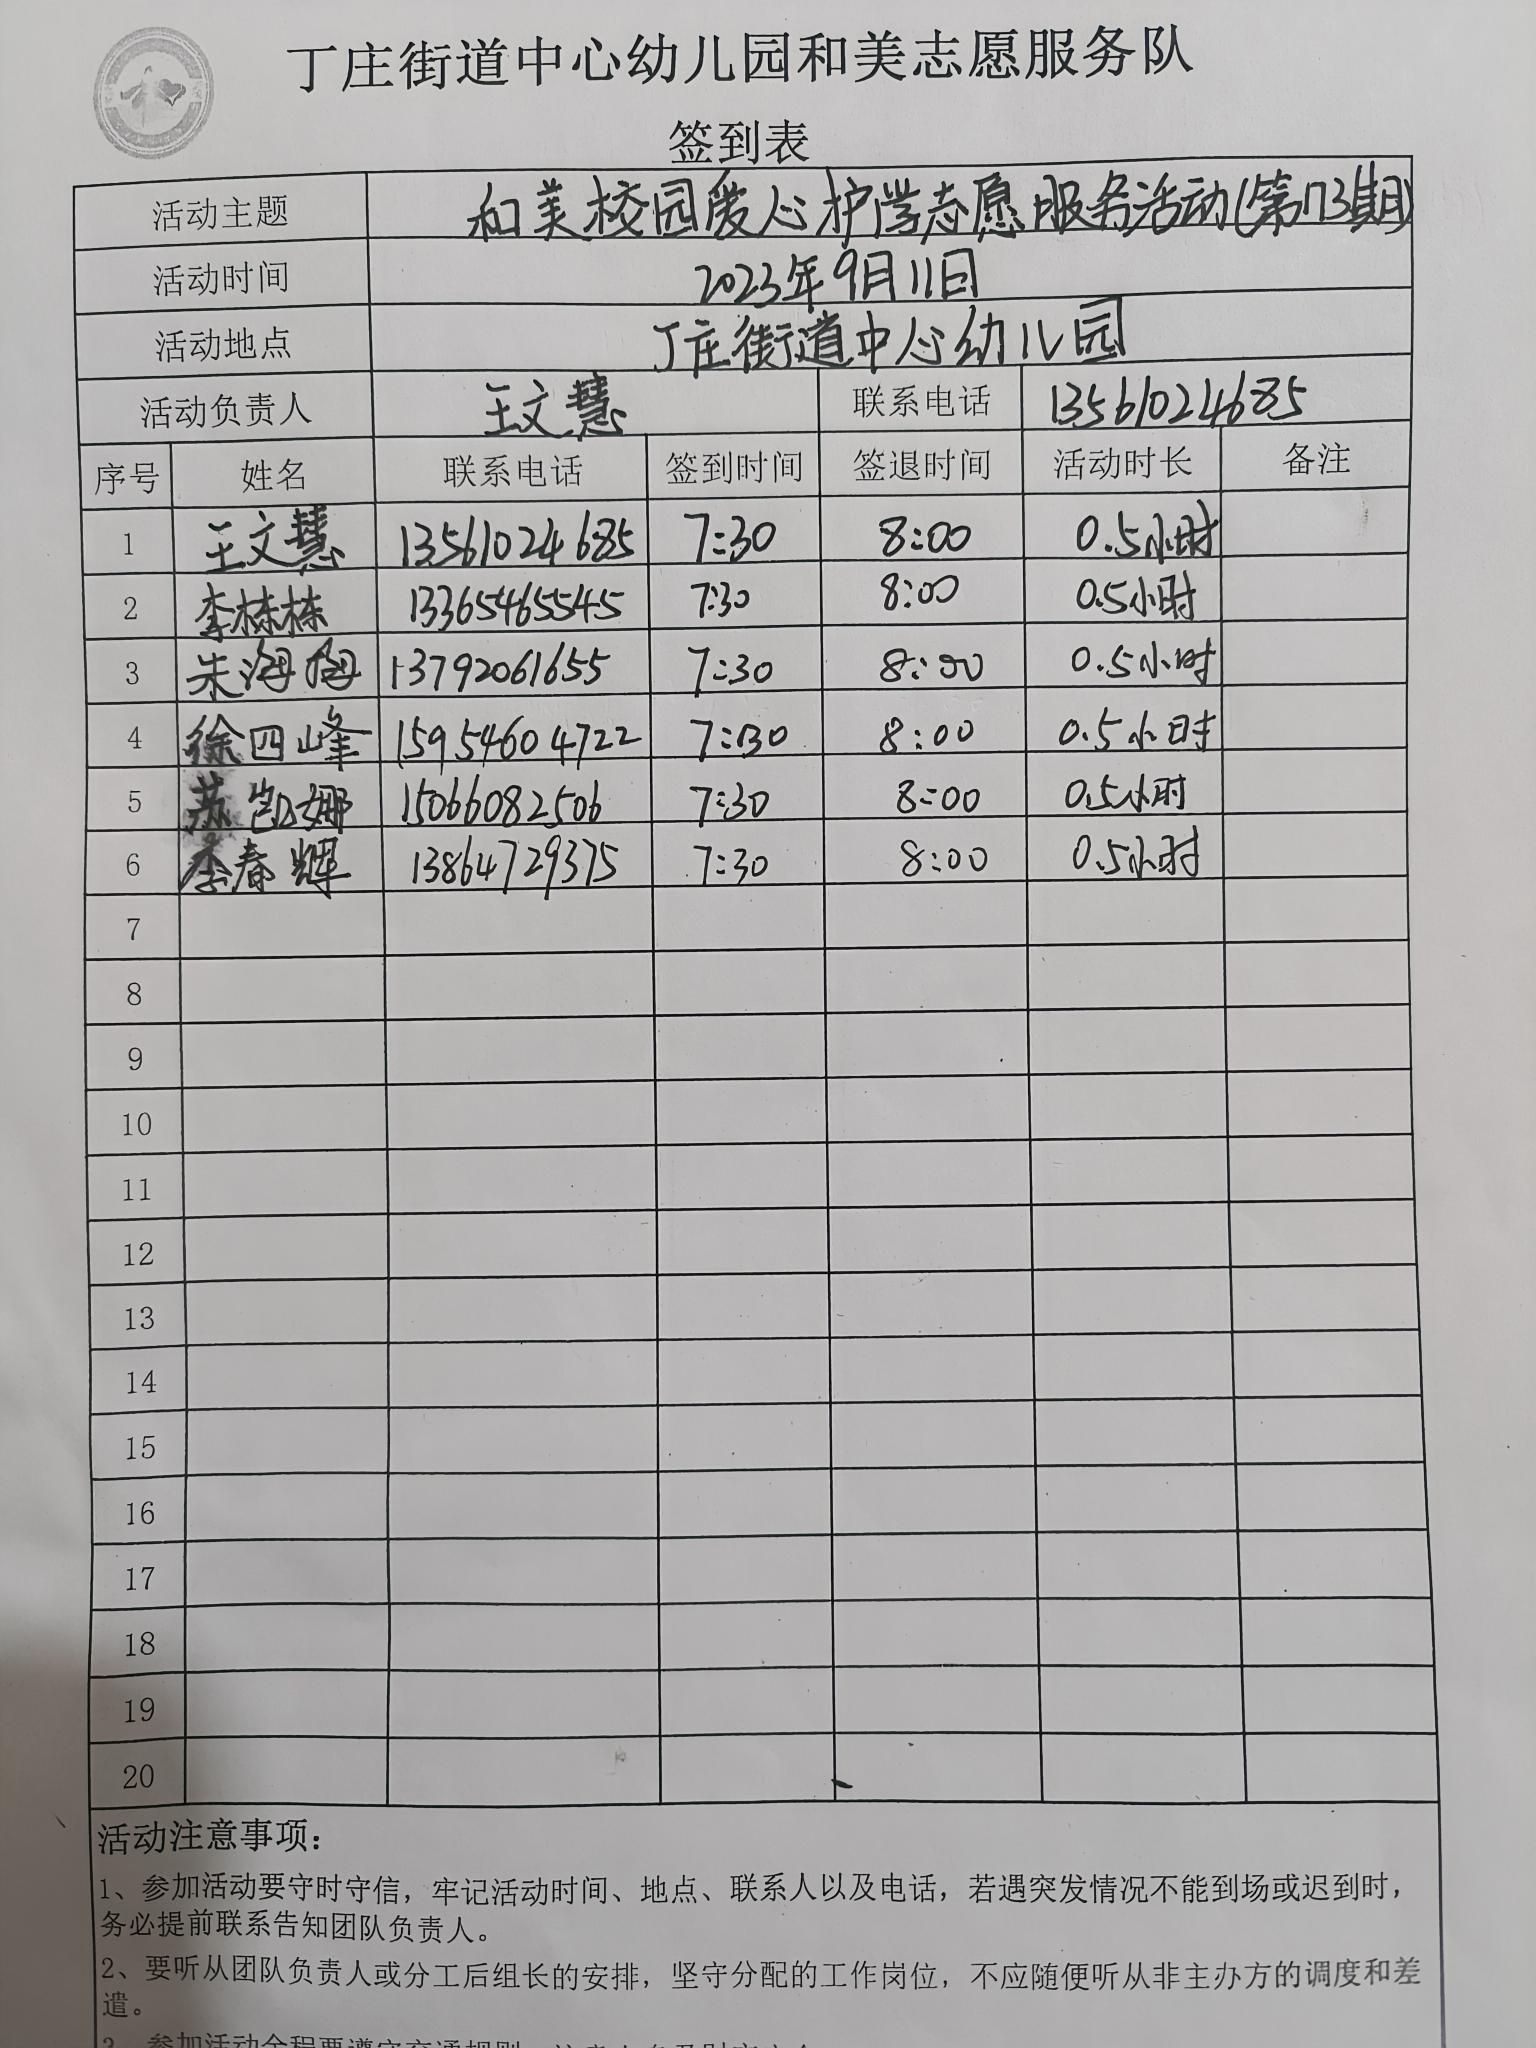 丁庄街道中心幼儿园和美志愿服务队
签到表
活动主题 和美校园爱心护学志愿服务活动(第173期)
活动时间 2023年9月11日
活动地点 丁庄街道中心幼儿园
活动负责人 王文慧 联系电话 13561024685
序号 姓名 联系电话 签到时间 签退时间 活动时长 备注
1 王文慧 13561024685 7:30 8:00 0.5小时
2 李栋栋 13365465545 7:30 8:00 0.5小时
3 朱海 13792061655 7:30 8:00 0.5小时
4 徐四峰 15954604722 7:30 8:00 0.5小时
5 苏凯娜 15066082506 7:30 8:00 0.5小时
6 李春辉 13864729375 7:30 8:00 0.5小时
7
8
9
10
11
12
13
14
15
16
17
18
19
20
活动注意事项：
1、参加活动要守时守信，牢记活动时间、地点、联系人以及电话，若遇突发情况不能到场或迟到时，
务必提前联系告知团队负责人。
2、要听从团队负责人或分工后组长的安排，坚守分配的工作岗位，不应随便听从非主办方的调度和差
遣。
3、参加活动全程要遵守交通规则，